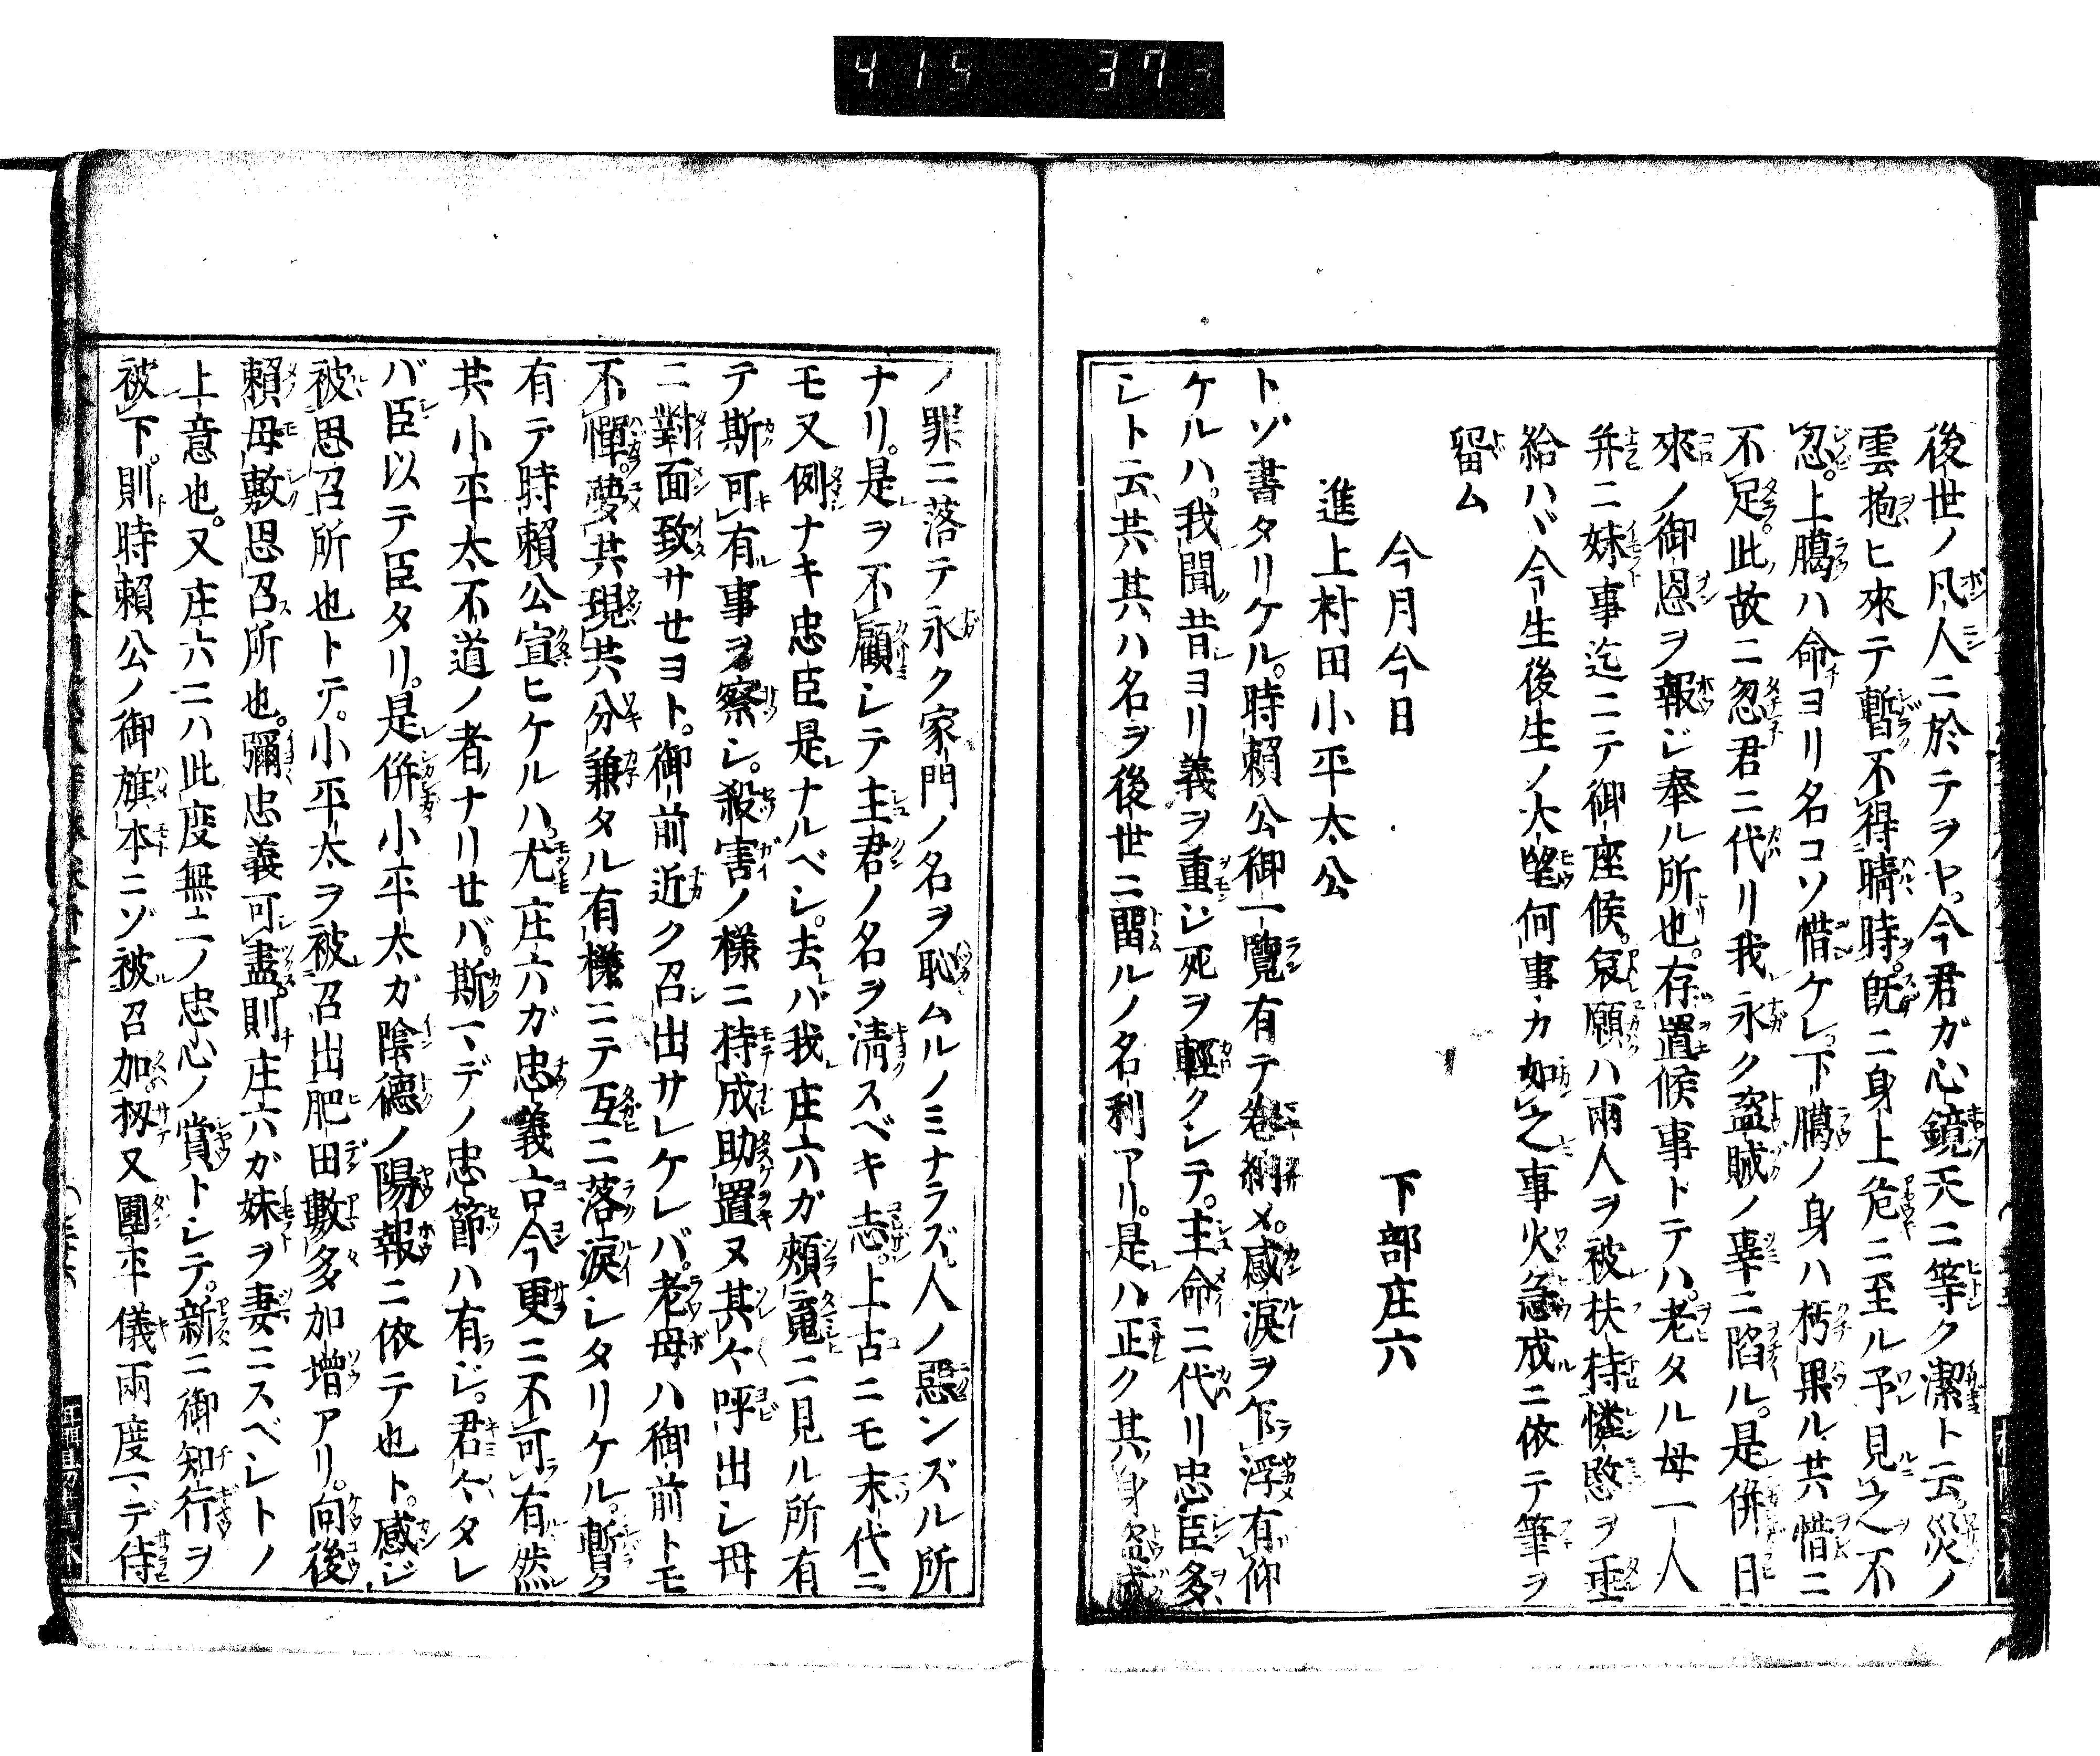 415 373
後世ノ凡人ニ於テヲヤ。今君ガ心鏡天ニ等ク潔ト云。災ノ
雲抱ヒ來テ暫不得晴時。既ニ身上危ニ至ル予見之不
忍。上﨟ハ命ヨリ名コソ惜ケレ。下﨟ノ身ハ朽果ル共惜ニ
不足。此故ニ忽君ニ代リ我永ク盗賊ノ辜ニ陷ル。是併日
來ノ御恩ヲ報ジ奉ル所也。存置候事トテハ。老タル母一人
幷ニ妹事迄ニテ御座候。哀願ハ兩人ヲ被扶持憐愍ヲ垂
給ハヾ今生後生ノ大望何事カ如之事火急成ニ依テ筆ヲ
留ム
今月今日　　下部庄六
進上村田小平太公
トゾ書タリケル。時賴公御一覽有テ卷納メ。感淚ヲ乍浮有仰
ケルハ。我聞昔ヨリ義ヲ重ジ死ヲ輕クシテ。主命ニ代リ忠臣多
シト云共其ハ名ヲ後世ニ留ルノ名利アリ。是ハ正ク其身盗賊
ノ罪ニ落テ永ク家門ノ名ヲ恥ムルノミナラズ。人ノ惡ンズル所
ナリ。是ヲ不顧シテ主君ノ名ヲ淸スベキ志。上古ニモ末代ニ
モ又例ナキ忠臣是ナルベシ。去バ我庄六ガ頰魂ニ見ル所有
テ斯可有事ヲ察シ。殺害ノ樣ニ持成助置ヌ其々呼出シ母
ニ對面致サセヨト。御前近ク召出サレケレバ。老母ハ御前トモ
不憚。夢共現共分兼タル有樣ニテ互ニ落淚シタリケル。暫ク
有テ時賴公宣ヒケルハ。尤庄六ガ忠義古今更ニ不可有然
共小平太不道ノ者ナリせバ。斯マデノ忠節ハ有ジ。君々タレ
バ臣以テ臣タリ。是併小平太ガ陰德ノ陽報ニ依テ也ト。感ジ
被思召所也トテ。小平太ヲ被召出肥田數多加增アリ。向後
賴母敷思召所也。彌忠義可盡。則庄六ガ妹ヲ妻ニスベシトノ
上意也。又庄六ニハ此度無二ノ忠心ノ賞トシテ。新ニ御知行ヲ
被下。則時賴公ノ御旗本ニゾ被召加扨又團平儀兩度マデ侍